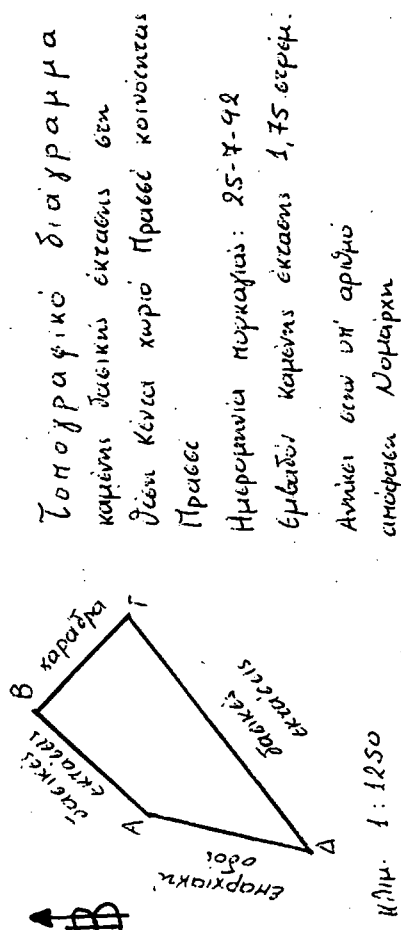 Τοπογραφικό διάγραμμα
καμένης δασικής έκτασης στη
θέση Κέντα χωριό Πρασσέ κοινότητας
Πρασσέ
Ημερομηνία πυρκαγιάς: 25-7-92
Εμβαδόν καμένης έκτασης 1,75 στρέμ.
Ανήκει στην υπ' αριθμό
απόφαση Νομάρχη
Β
Β
χαράδρα
Γ
δασικές
εκτάσεις
Α
δασικές
εκτάσεις
επαρχιακή
οδός
Δ
κλιμ. 1:1250